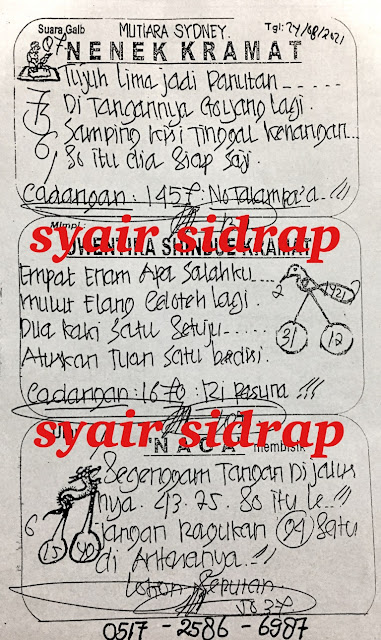 Suara Gaib MUTIARA SYDNEY. Tgl: 24/08/2021
07
NENEK KRAMAT
Tujuh Lima jadi Panutan
Di Tangannya Goyang Lagi.
7
5
6
Samping Kisi Tinggal Kenangan...
80 itu dia Siap Saji.
Cadangan: 1457. No Talampa'a
Mimpi
syair sidrap
KRAMAT
Empat Enam Apa Salahku
2 121
Mulut Elang Celoteh Lagi.
Dua Kaki Satu Setuju
31 12
Aturkan Tuan Satu berdisi.
Cadangan: 1670: 121 Pasuna !!!
syair sidrap
"NAGA" membisik
Segenggam Tangan Di jalur
nya. 43.75. 80 itu Le...
6
15 90
Jangan Ragukan 94 Satu
di Antaranya.
0517 - 2586 - 6987